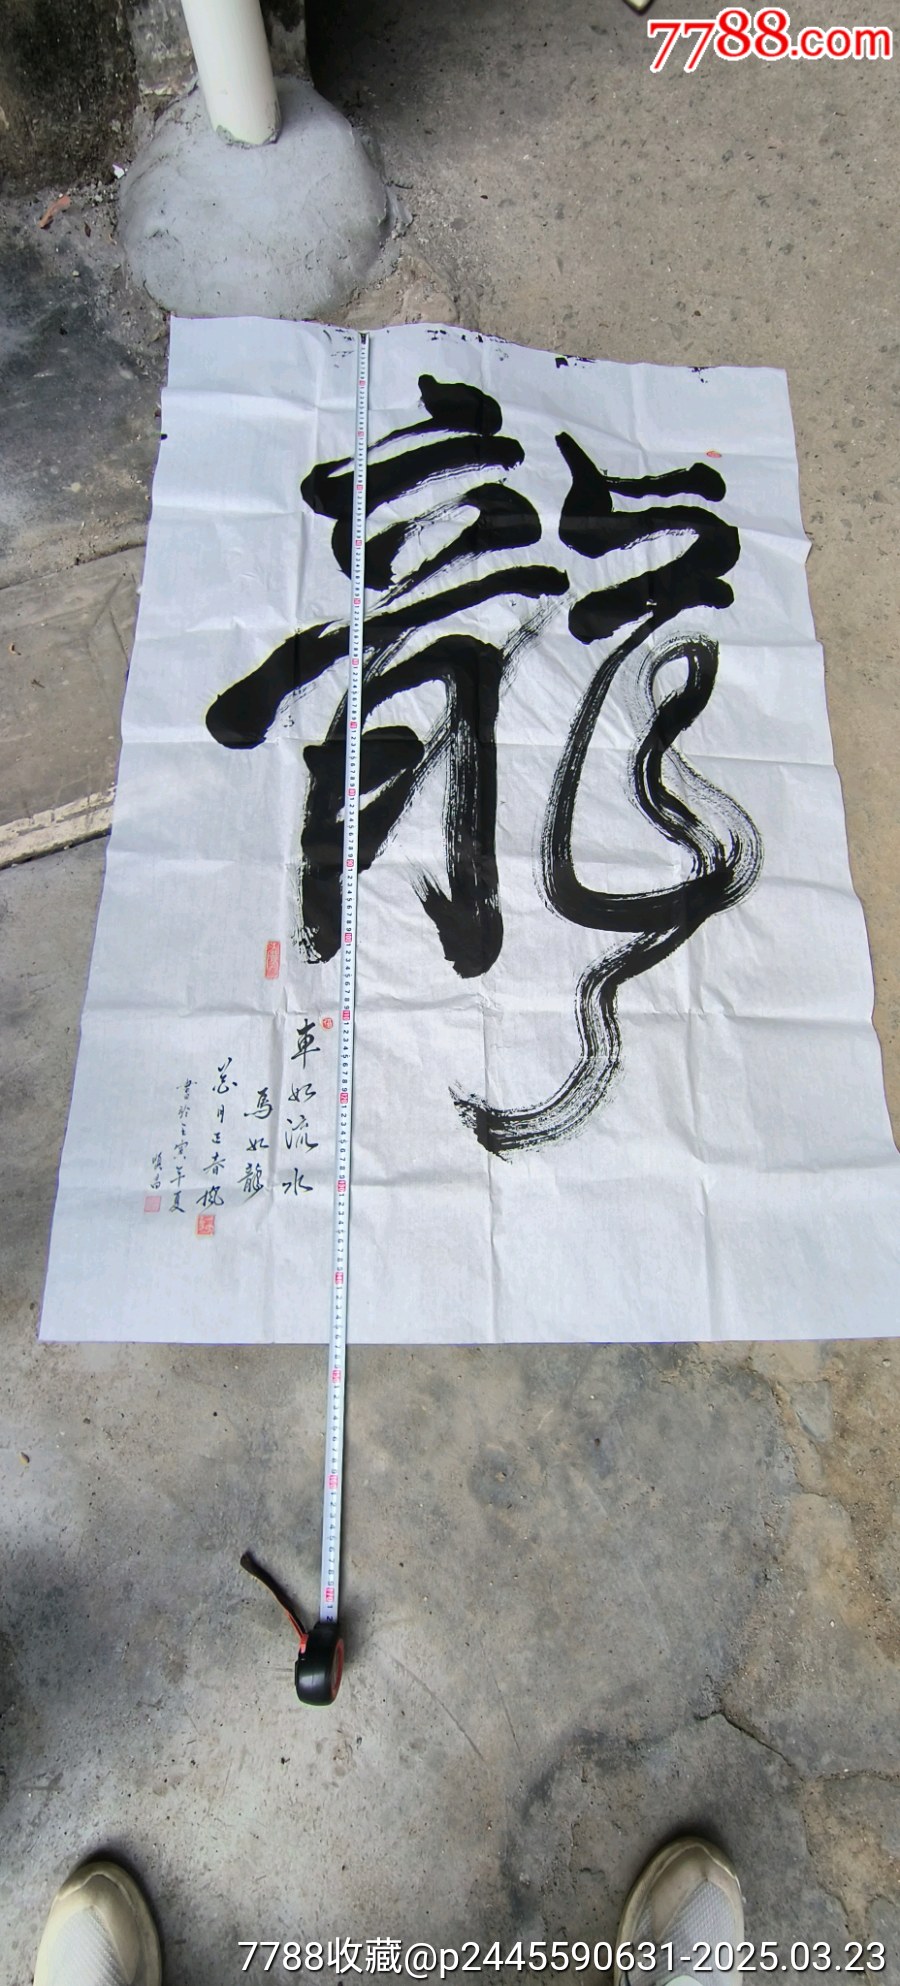 7788.com
龍
車如流水
馬如龍
花月正春風
書於壬寅年夏
7788收藏@p2445590631-2025.03.23